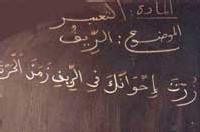 المادة : التعبير
الموضوع : الريف
زرت إخوانك في الريف زمن الحر